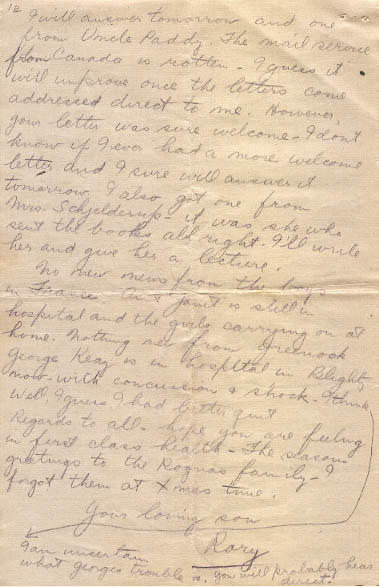 12
I will answer tomorrow and one
from Uncle Paddy. The mail service
from Canada is rotten - I guess it
will improve once the letters come
addressed direct to me. However,
your letter was sure welcome - I don't
know if I ever had a more welcome
letter and I sure will answer it
tomorrow. I also got one from
Mrs. Schjelderup - it was she who
sent the books all right. I'll write
her and give her a lecture.
No new news from the boys
in France. Janet is still in
hospital and the girls carrying on at
home. Nothing new from Greenock
George Keay is in hospital in Blighty
now - with concussion & shock - I think
Well, I guess I had better quit
Regards to all - hope you are feeling
in first class health - The seasons
greetings to the Rognas family - I
forgot them at Xmas time.
Your loving son
Rory
I am uncertain
what georges trouble is. you will probably hear
direct.